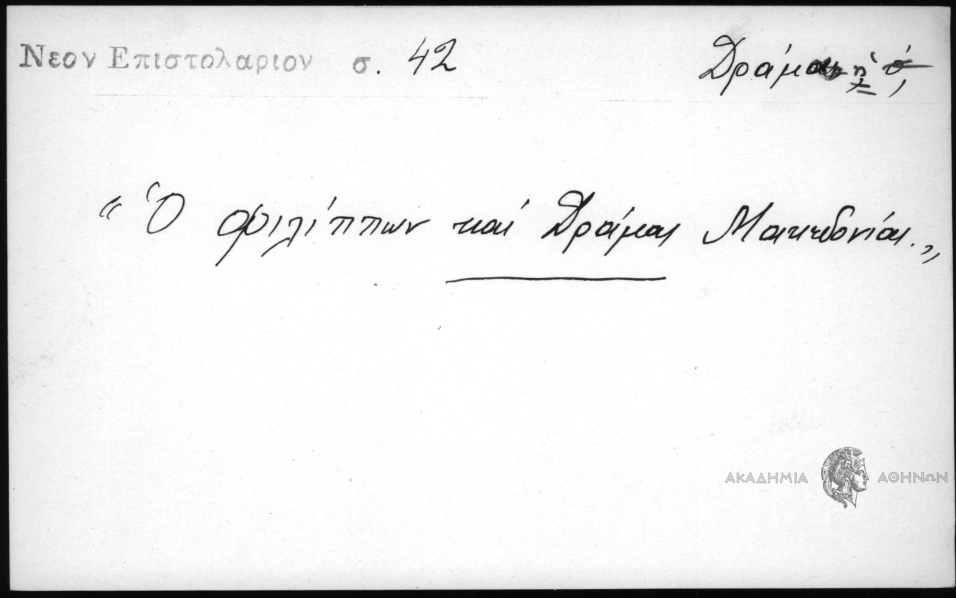 Νεον Επιστολαριον σ. 42
Δράμα, ἡ
"Ὁ φιλίππων καί Δράμας Μακεδονίας."
ΑΚΑΔΗΜΙΑ ΑΘΗΝΩΝ